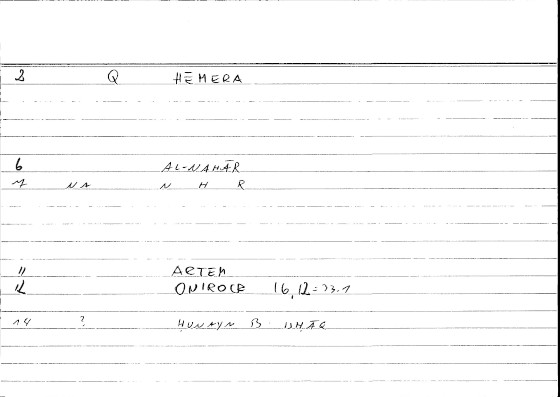 2 Q HĒMERA
6 AL-NAHĀR
7 NA N H R
11 ARTEM
12 ONIROCR 16,12 = 23.1
14 ? ḤUNAYN B ISḤĀQ